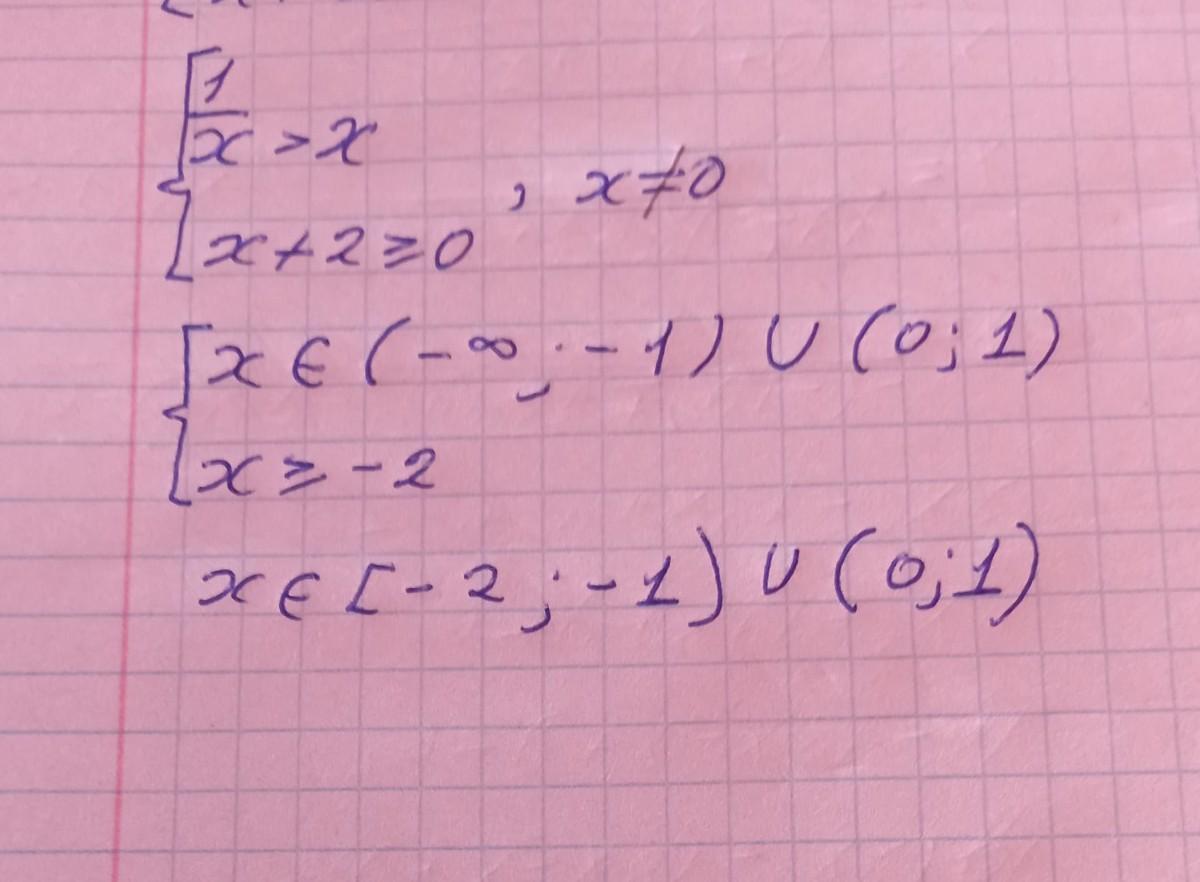 { 1/x > x
, x ≠ 0
x + 2 ≥ 0
{ x ∈ (-∞; -1) ∪ (0; 1)
x ≥ -2
x ∈ [-2; -1) ∪ (0; 1)